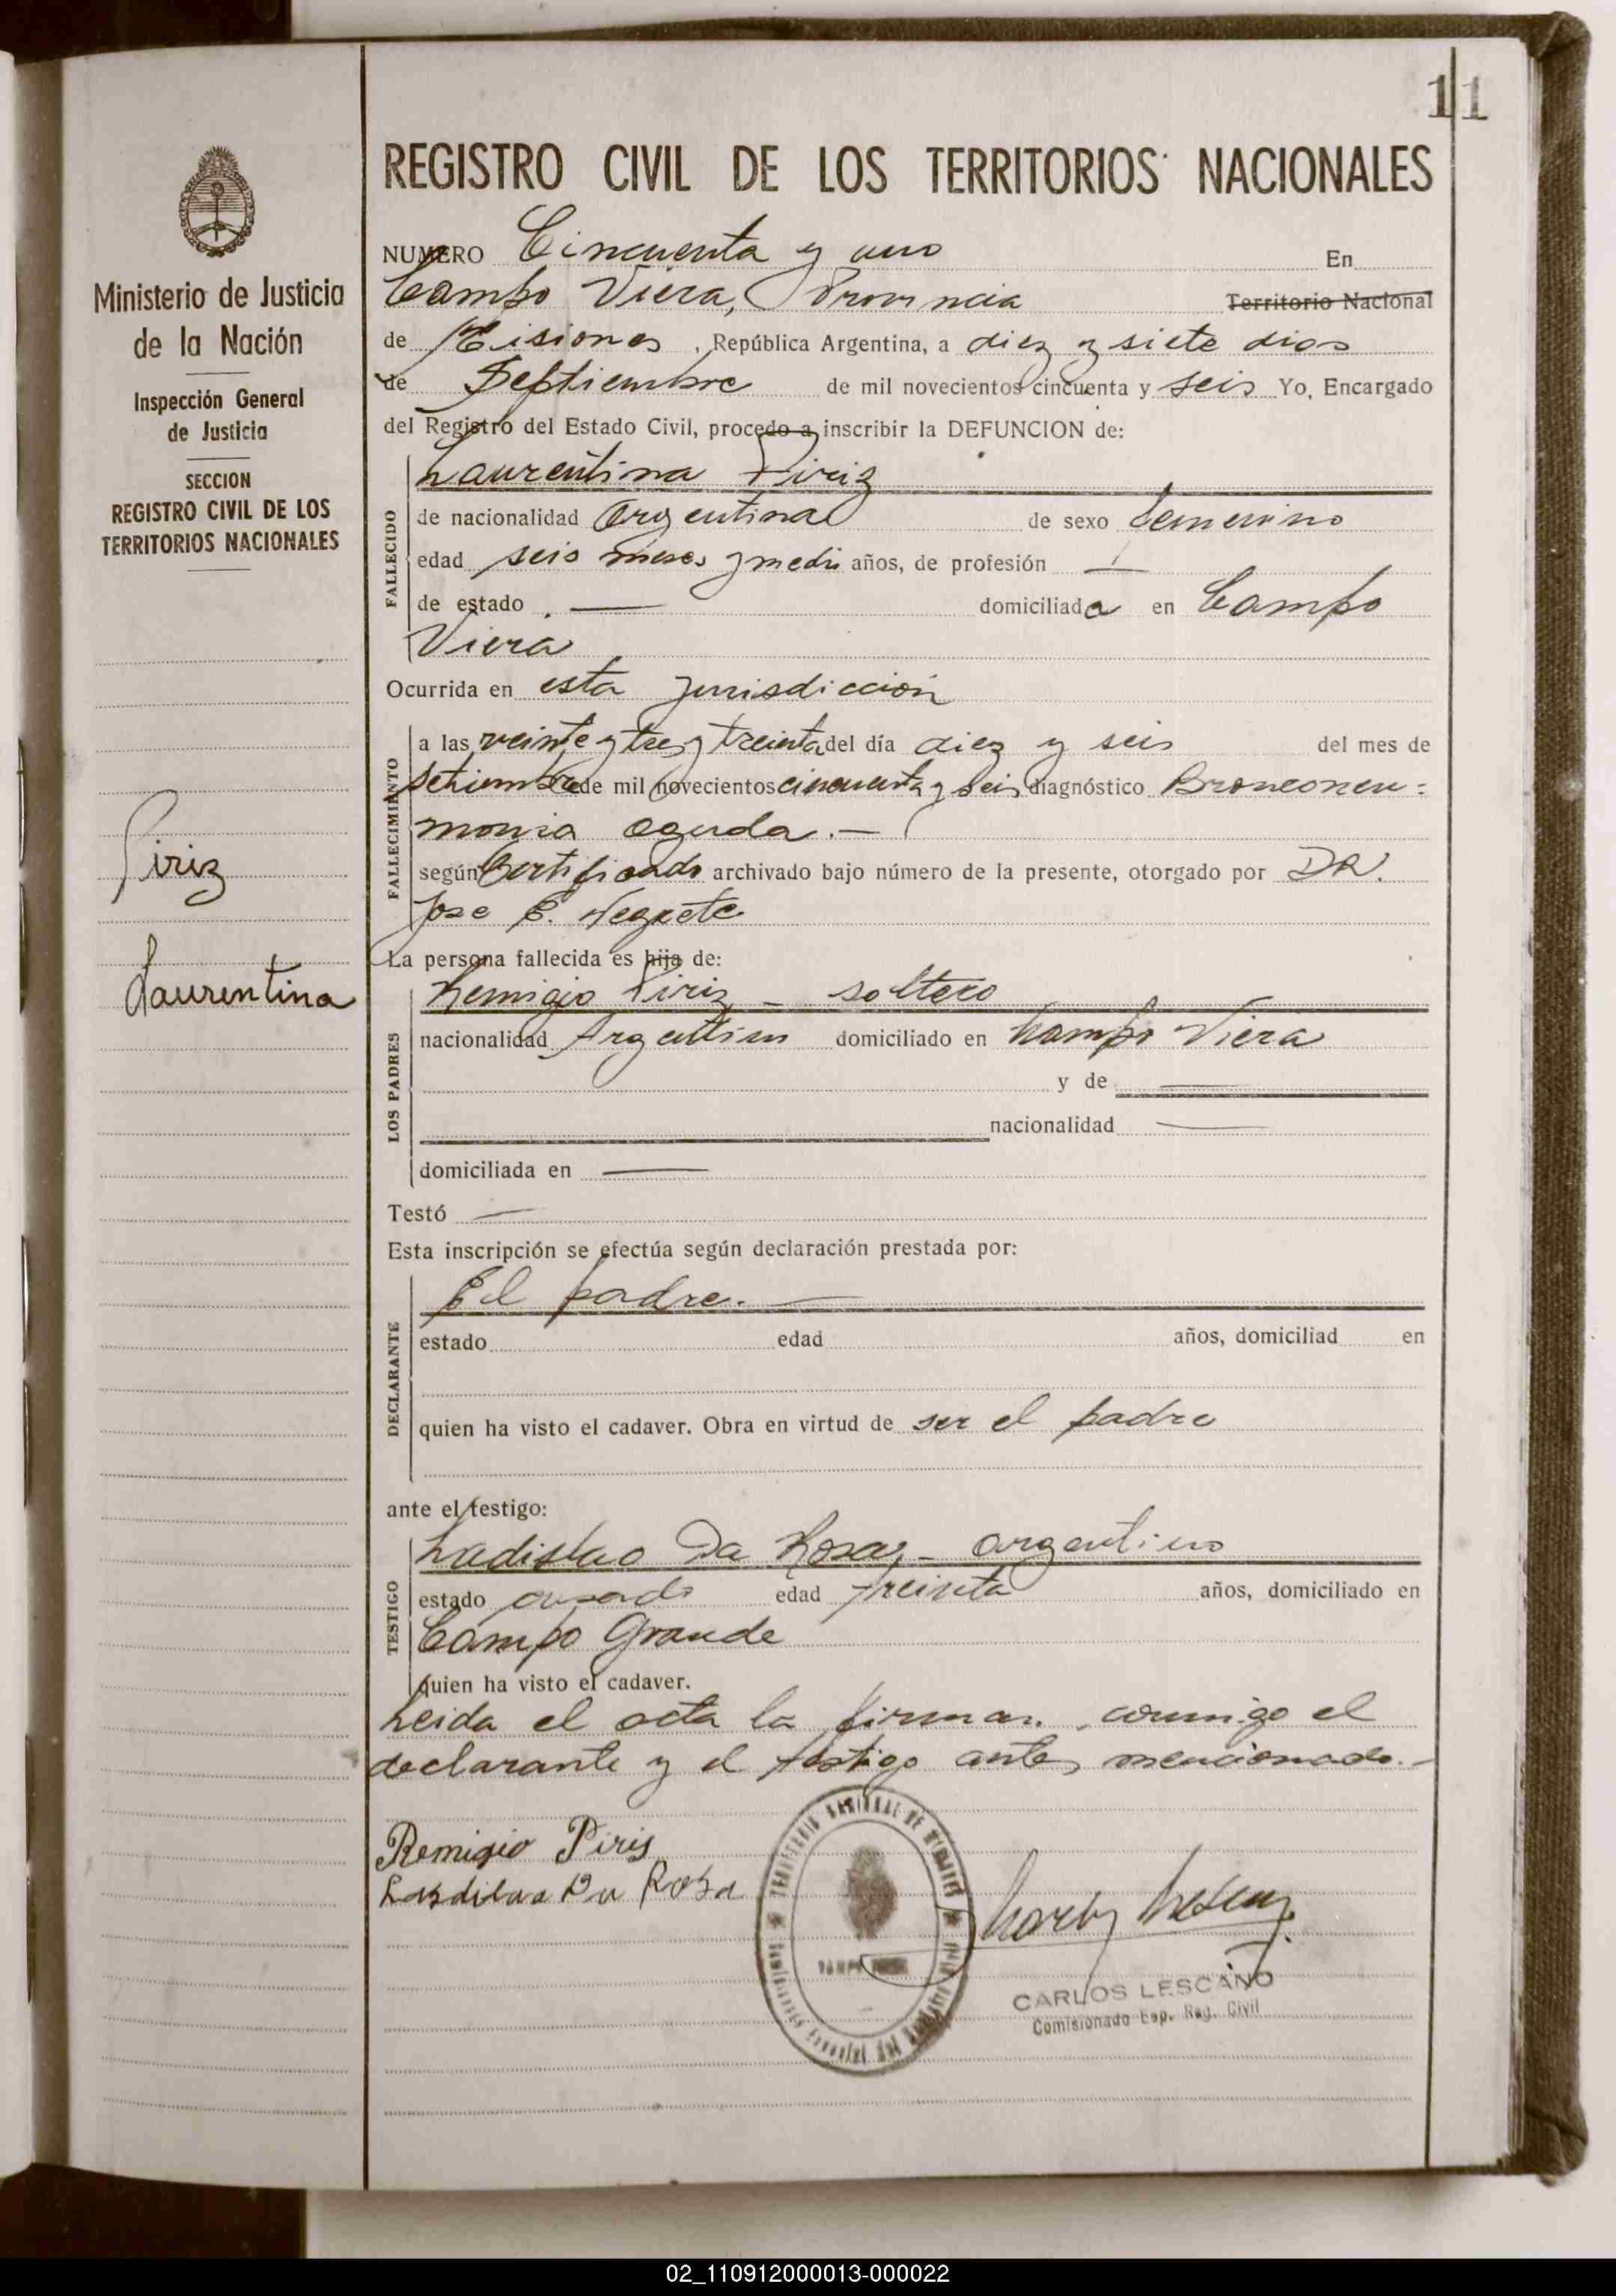 11
REGISTRO CIVIL DE LOS TERRITORIOS NACIONALES
Ministerio de Justicia
de la Nación
Inspección General
de Justicia
SECCION
REGISTRO CIVIL DE LOS
TERRITORIOS NACIONALES
Piriz
Laurentina
NUMERO Cincuenta y uno En
Campo Viera, Provincia Territorio Nacional
de Misiones, República Argentina, a diez y siete dias
de Septiembre de mil novecientos cincuenta y seis Yo, Encargado
del Registro del Estado Civil, procedo a inscribir la DEFUNCION de:
FALLECIDO
Laurentina Piriz
de nacionalidad Argentina de sexo femenino
edad seis meses y medio años, de profesión —
de estado — domiciliada en Campo
Viera
Ocurrida en esta Jurisdicción
FALLECIMIENTO
a las veinte y tres y treinta del día diez y seis del mes de
Setiembre de mil novecientos cincuenta y seis diagnóstico Bronconeu=
monia aguda.—
según Certificado archivado bajo número de la presente, otorgado por DR.
Jose E. Negrete
La persona fallecida es hija de:
LOS PADRES
Remigio Piriz - soltero
nacionalidad Argentino domiciliado en Campo Viera
y de —
nacionalidad —
domiciliada en —
Testó —
Esta inscripción se efectúa según declaración prestada por:
DECLARANTE
El padre. —
estado edad años, domiciliad en
quien ha visto el cadaver. Obra en virtud de ser el padre
ante el testigo:
TESTIGO
Ladislao Da Rosa, - argentino
estado casado edad treinta años, domiciliado en
Campo Grande
quien ha visto el cadaver.
Leida el acta la firman conmigo el
declarante y el testigo antes mencionado.-
Remigio Piris
Da Rosa
CARLOS LESCANO
Comisionado Esp. Reg. Civil
02_110912000013-000022